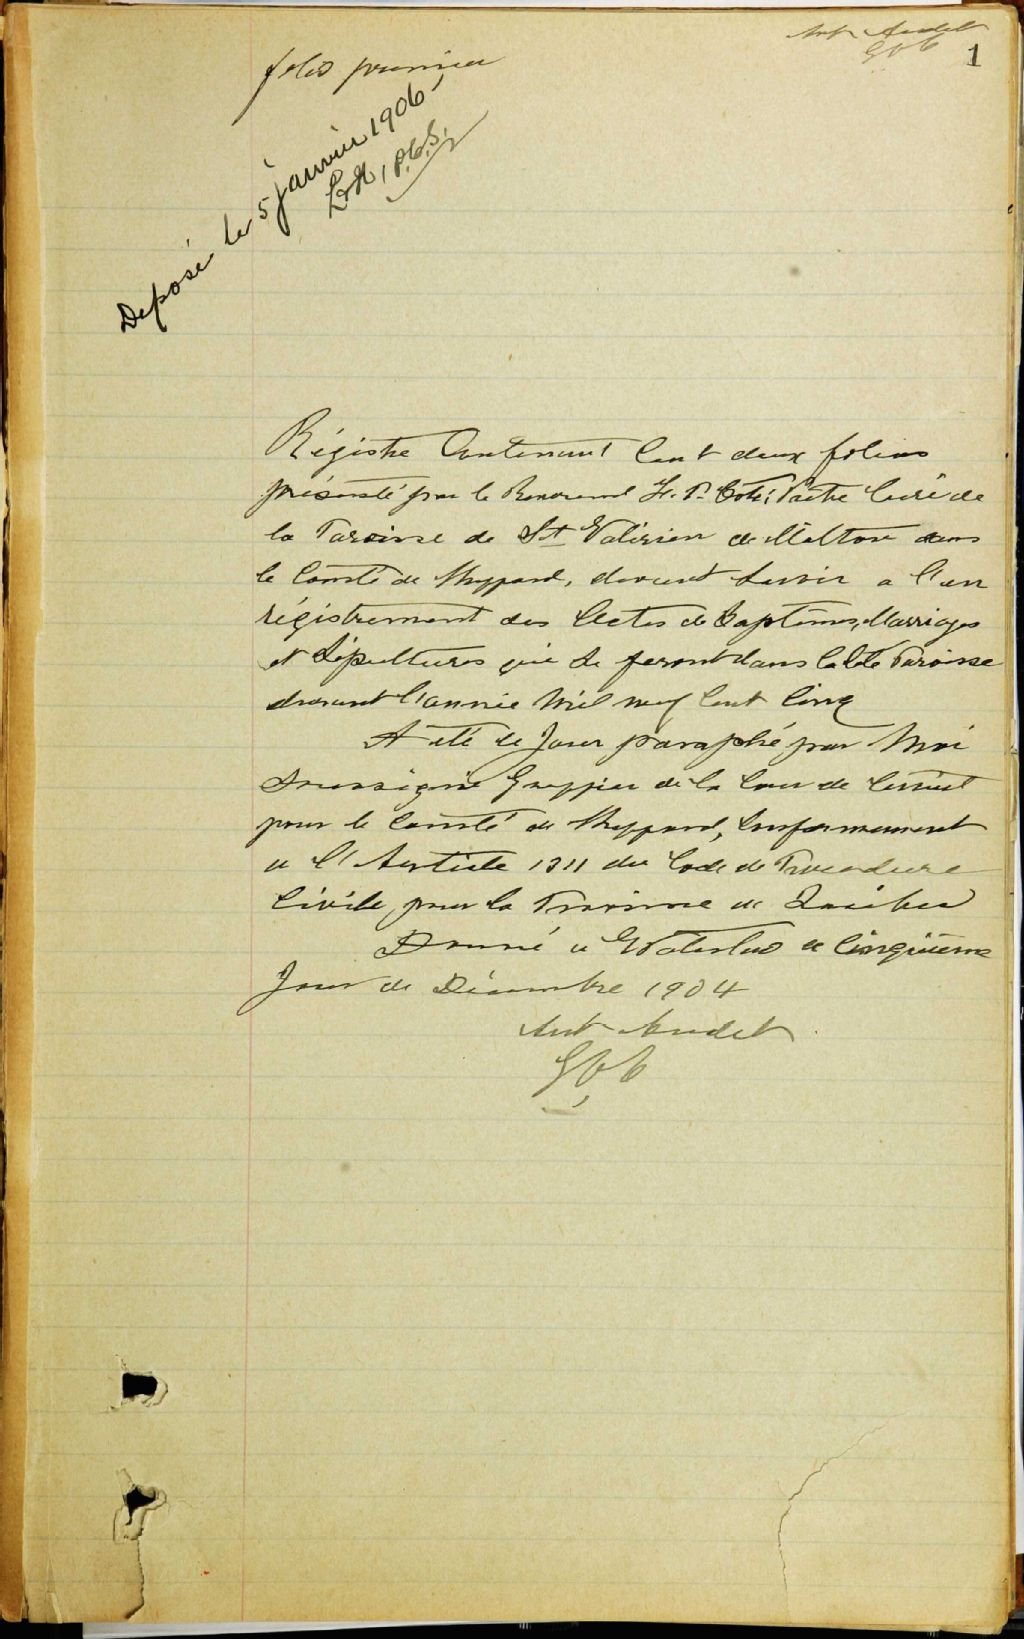 Ant Audet
GCC
1
folio premier
Déposé le 5 janvier 1906
P.C.S.
Régistre Contenant Cent deux folios
présenté par le Révérend F. P. Côté, Prêtre Curé de
la Paroisse de St Valérien de Milton dans
le Comté de Shefford, devant servir a l'en
régistrement des Actes de Baptêmes, Marriages
et Sépultures qui se feront dans la dte Paroisse
durant l'année Mil neuf Cent Cinq
A été ce Jour paraphé par Moi
soussigné Greffier de la Cour de Circuit
pour le Comté de Shefford, Conformement
a l'Article 1311 du Code de Procedure
Civile pour la Province de Québec
Donné a Waterloo ce Cinquième
Jour de Décembre 1904
Ant Audet
GCC